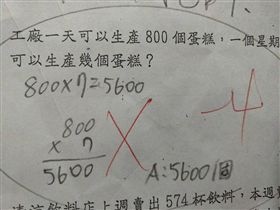 工廠一天可以生產 800 個蛋糕，一個星期
可以生產幾個蛋糕？
800×7=5600
800
× 7
5600
A:5600個
-4
飲料店上週賣出 574 杯飲料，本週